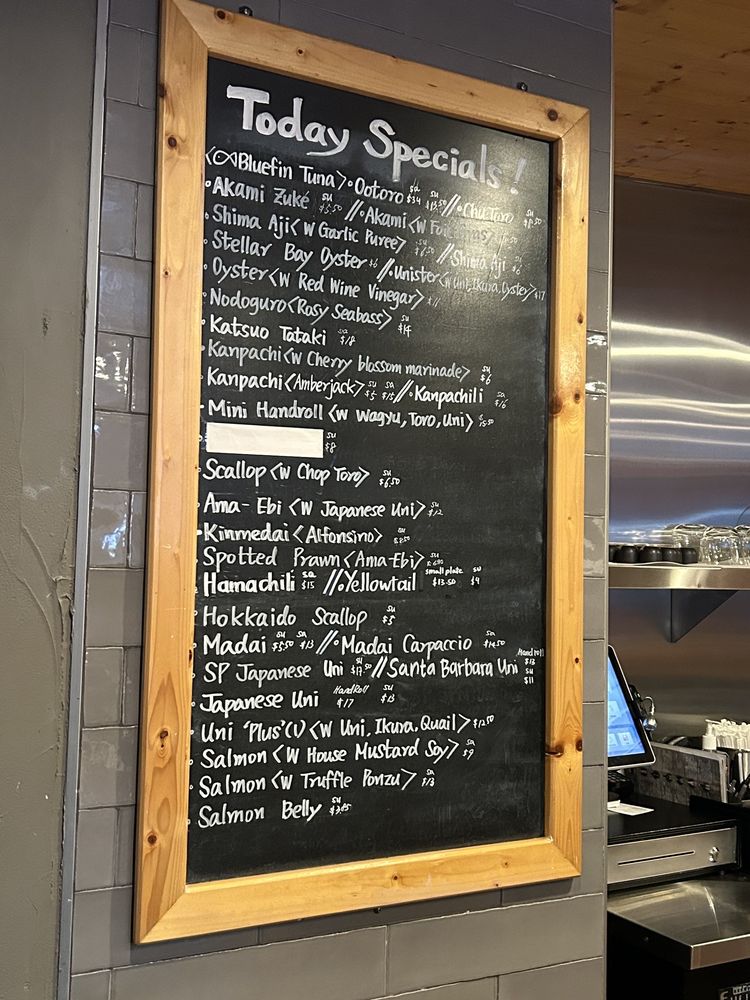 Today Specials!
<Bluefin Tuna> • Ootoro sa $34 su // • Chu Toro su
• Akami Zuké su $5.50 // • Akami <W
• Shima Aji <W Garlic Puree> su $6.50 // • Shima Aji su $6
• Stellar Bay Oyster $6 // • Unister <W Uni, Ikura, Oyster> $17
• Oyster <W Red Wine Vinegar>
• Nodoguro <Rosy Seabass> su $14
• Katsuo Tataki sa $18
• Kanpachi <W Cherry blossom marinade> su $6
• Kanpachi <Amberjack> su $5 sa $15 // • Kanpachili sa $16
• Mini Handroll <W Wagyu, Toro, Uni>
su $8
• Scallop <W Chop Toro> su $6.50
• Ama-Ebi <W Japanese Uni> su $12
• Kinmedai <Alfonsino> su
• Spotted Prawn <Ama-Ebi> su
• Hamachili sa $15 // • Yellowtail small plate $13.50 su $4
• Hokkaido Scallop su $5
• Madai su $5.50 sa $13 // • Madai Carpaccio sa $14.50
• SP Japanese Uni su // • Santa Barbara Uni Handroll $13 su $11
• Japanese Uni HandRoll $17 su $13
• Uni 'Plus' (1) <W Uni, Ikura, Quail> $12.50
• Salmon <W House Mustard Soy> sa $9
• Salmon <W Truffle Ponzu> sa $13
• Salmon Belly su